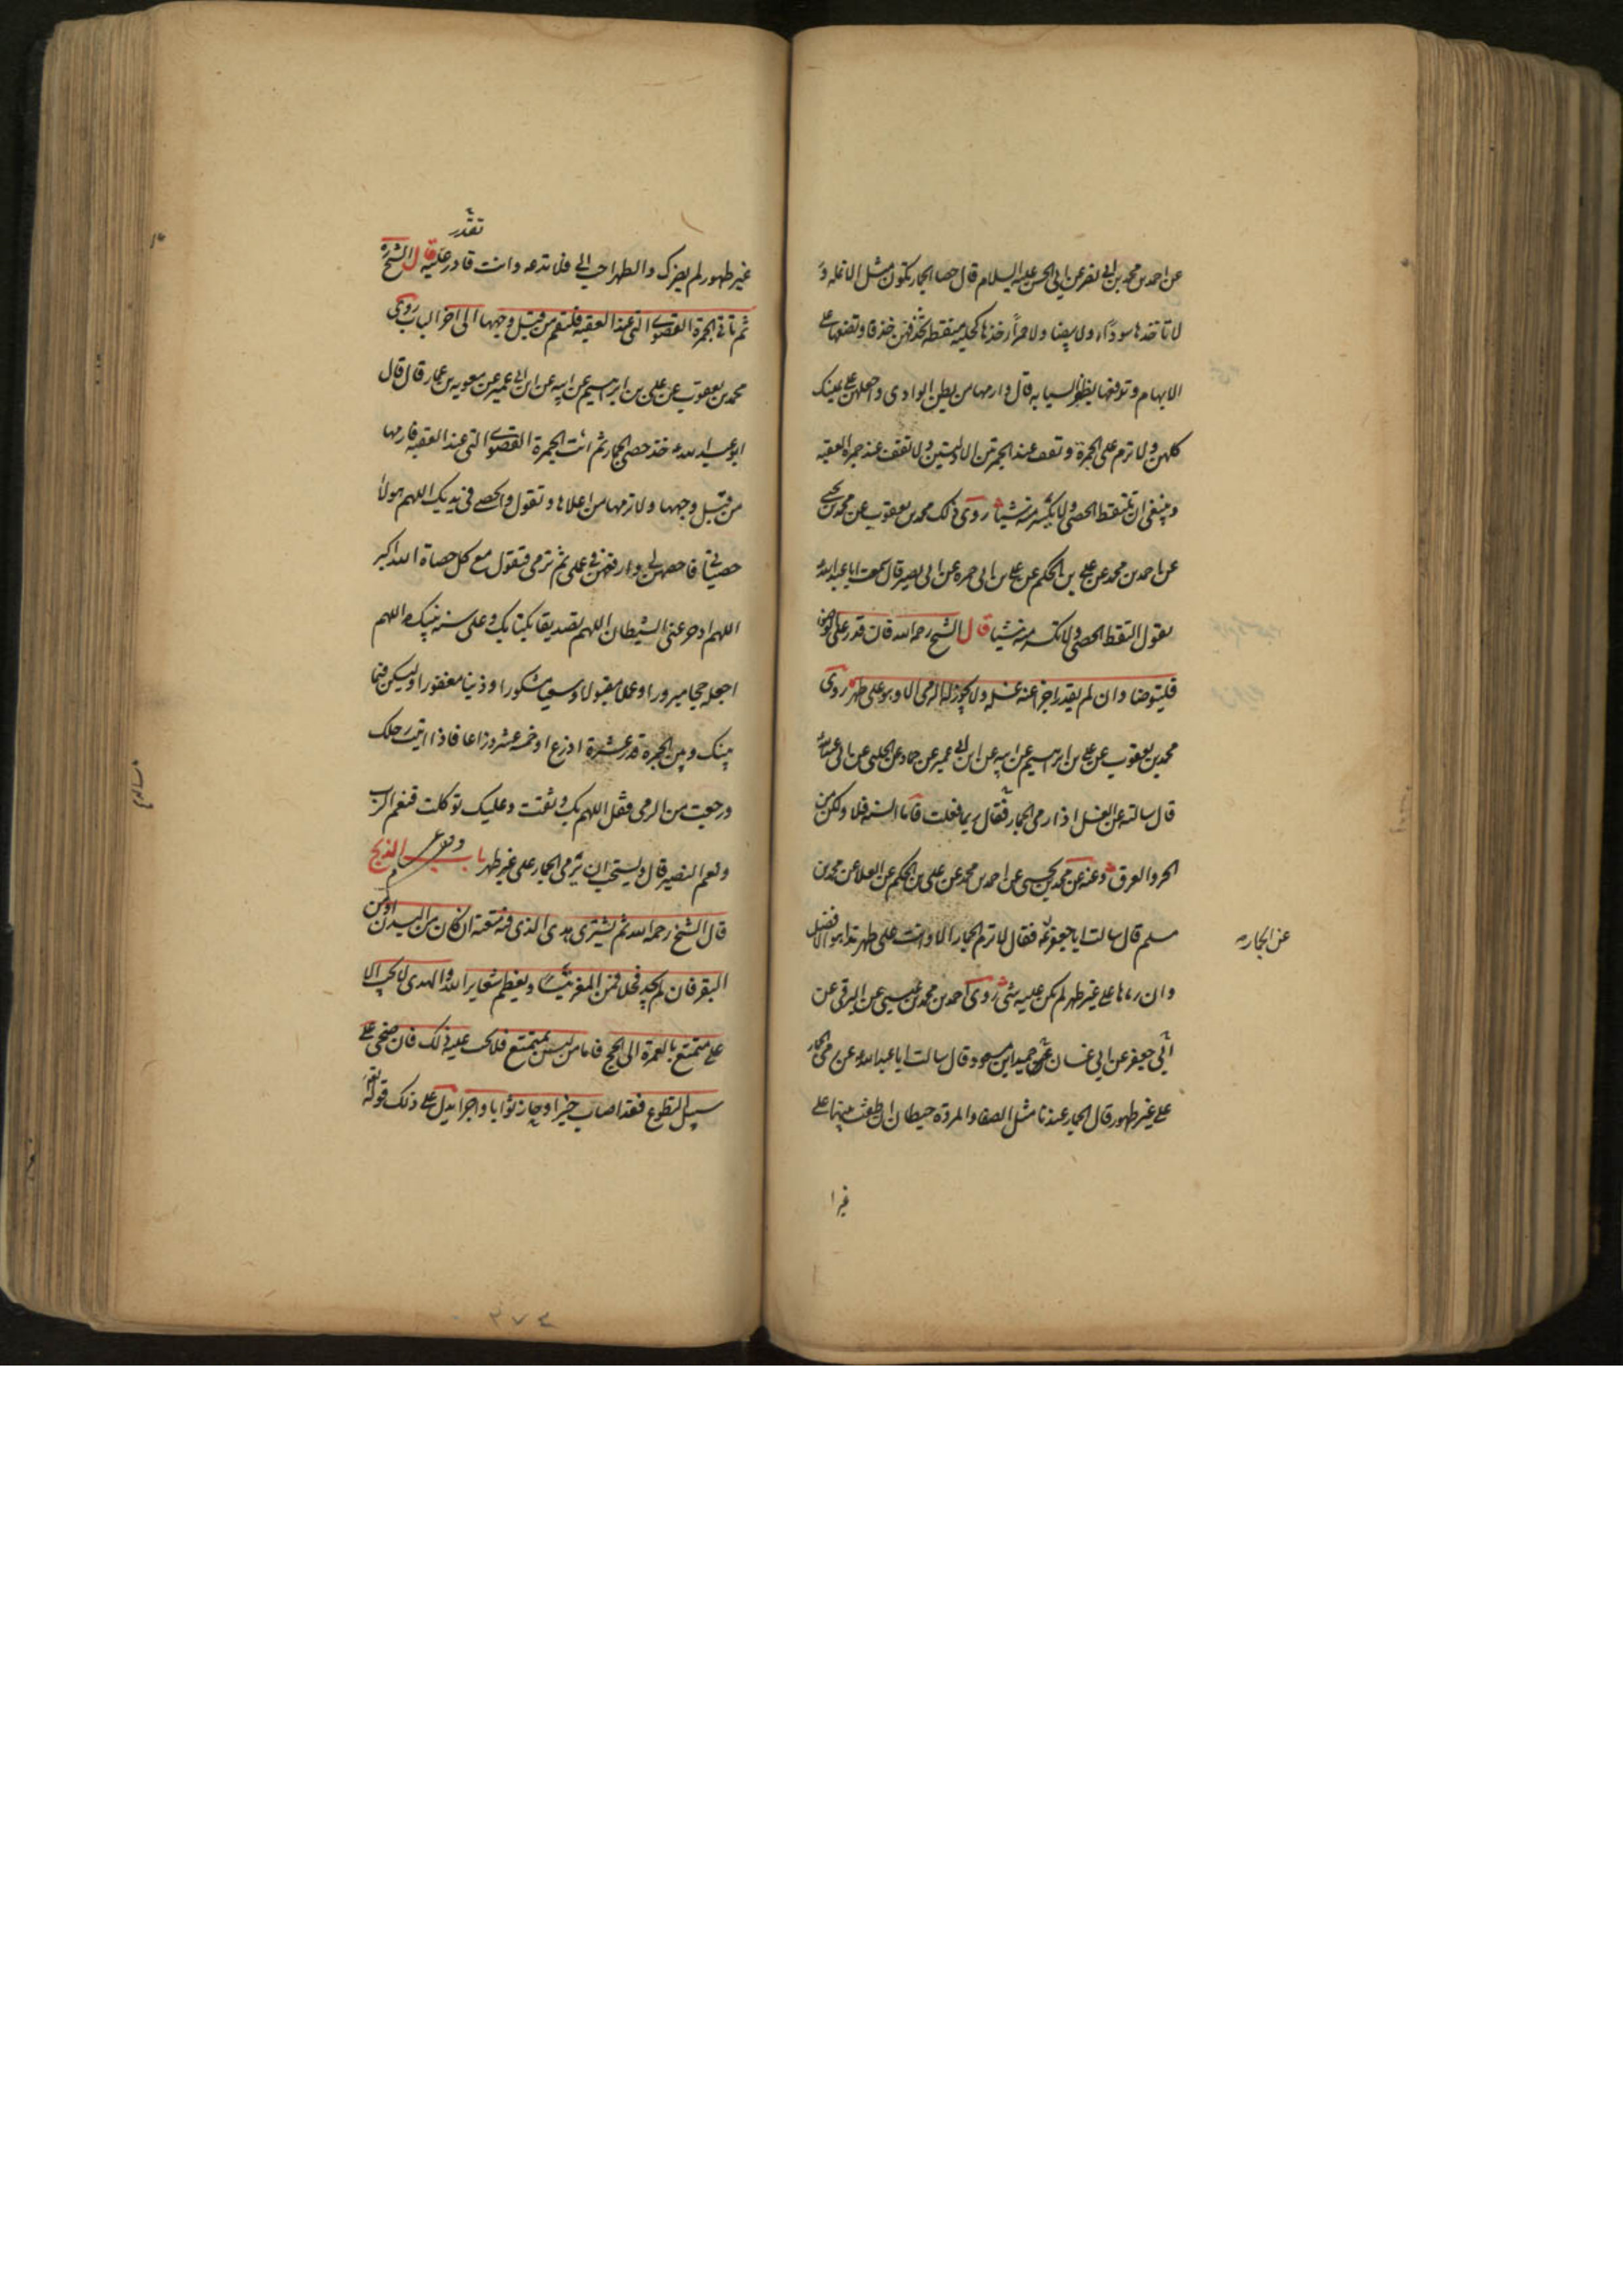 عن احمد بن محمد بن ابی نصر عن ابی الحسن علیه السلام قال حصا الجمار تکون مثل الانملة و
لا تاخذها سوداء ولا بیضا ولا حمرآء خذها کحلیه منقطه تخذفهن خذفا و تضعها علی
الابهام و تدفعها بظفر السبابه قال وارمها من بطن الوادی واجعلهن علی یمینک
کلهن ولا ترم علی الجمرة و تقف عند الجمرتین الاولیین ولا تقف عند جمرة العقبه
و ینبغی ان تلتقط الحصی ولا یکسر منه شیئا روی ذلک محمد بن یعقوب عن محمد بن یحیی
عن احمد بن محمد عن علی بن الحکم عن علی بن ابی حمزه عن ابی بصیر قال سمعت ابا عبد الله ع
یقول التقط الحصی ولا تکسر منه شیئا قال الشیخ رحمه الله فان قدر علی الوضو
فلیتوضا وان لم یقدر اجزا عنه غسله ولا یجوز له الرمی الا وهو علی طهر روی
محمد بن یعقوب عن علی بن ابرهیم عن ابیه عن ابن ابی عمیر عن حماد عن الحلبی عن ابی عبدالله ع
قال سالته عن الغسل اذا رمی الجمار فقال ربما فعلت فاما السنه فلا ولکن من
الحر والعرق وعنه عن محمد بن یحیی عن احمد بن محمد عن علی بن الحکم عن العلا عن محمد بن
مسلم قال سالت ابا جعفر ع فقال لا ترم الجمار الا وانت علی طهر هذا هو الافضل
عن الجمار
وان رماها علی غیر طهر لم یکن علیه شی روی احمد بن محمد بن عیسی عن البرقی عن
ابی جعفر عن ابی غسان عن حمید ابن مسعود قال سالت ابا عبدالله ع عن رمی الجمار
علی غیر طهور قال الجمار عندنا مثل الصفا والمروة حیطان ان طفت بینهما علی
غیرا
تقدر
غیر طهور لم یضرک والطهر احب الی فلا تدعه وانت قادر علیه قال الشیخ ره
ثم تاتی الجمرة القصوی التی عند العقبه فلتقم من قبل وجهها الی اخر الباب روی
محمد بن یعقوب عن علی بن ابرهیم عن ابیه عن ابن ابی عمیر عن معویه بن عمار قال قال
ابو عبد الله ع خذ حصی الجمار ثم ائت الجمرة القصوی التی عند العقبه فارمها
من قبل وجهها ولا ترمها من اعلاها و تقول والحصی فی یدیک اللهم هولاء
حصیاتی فاحصهن لی وارفعهن فی عملی ثم ترمی فتقول مع کل حصاة الله اکبر
اللهم ادحر عنی الشیطان اللهم تصدیقا بکتابک وعلی سنه نبیک ص اللهم
اجعله حجا مبرورا وعملا مقبولا وسعیا مشکورا وذنبا مغفورا ولیکن فیما
بینک وبین الجمرة قدر عشرة اذرع او خمسه عشر ذراعا فاذا اتیت رحلک
ورجعت من الرمی فقل اللهم بک وثقت وعلیک توکلت فنعم الرب
ونعم النصیر قال ویستحب ان ترمی الجمار علی غیر طهر باب الذبح
قال الشیخ رحمه الله ثم یشتری هدیه الذی فیه متعته ان کان من البدن او من
البقر فان لم یجد فحلا فمن المعز تیسا ویعظم شعایر الله والهدی لا یجب الا
علی متمتع بالعمرة الی الحج فاما من لیس بمتمتع فلا یجب علیه ذلک فان ضحی علی
سبیل التطوع فقد اصاب خیرا وحاز ثوابا واجرا یدل علی ذلک قوله تع
۳۷۴